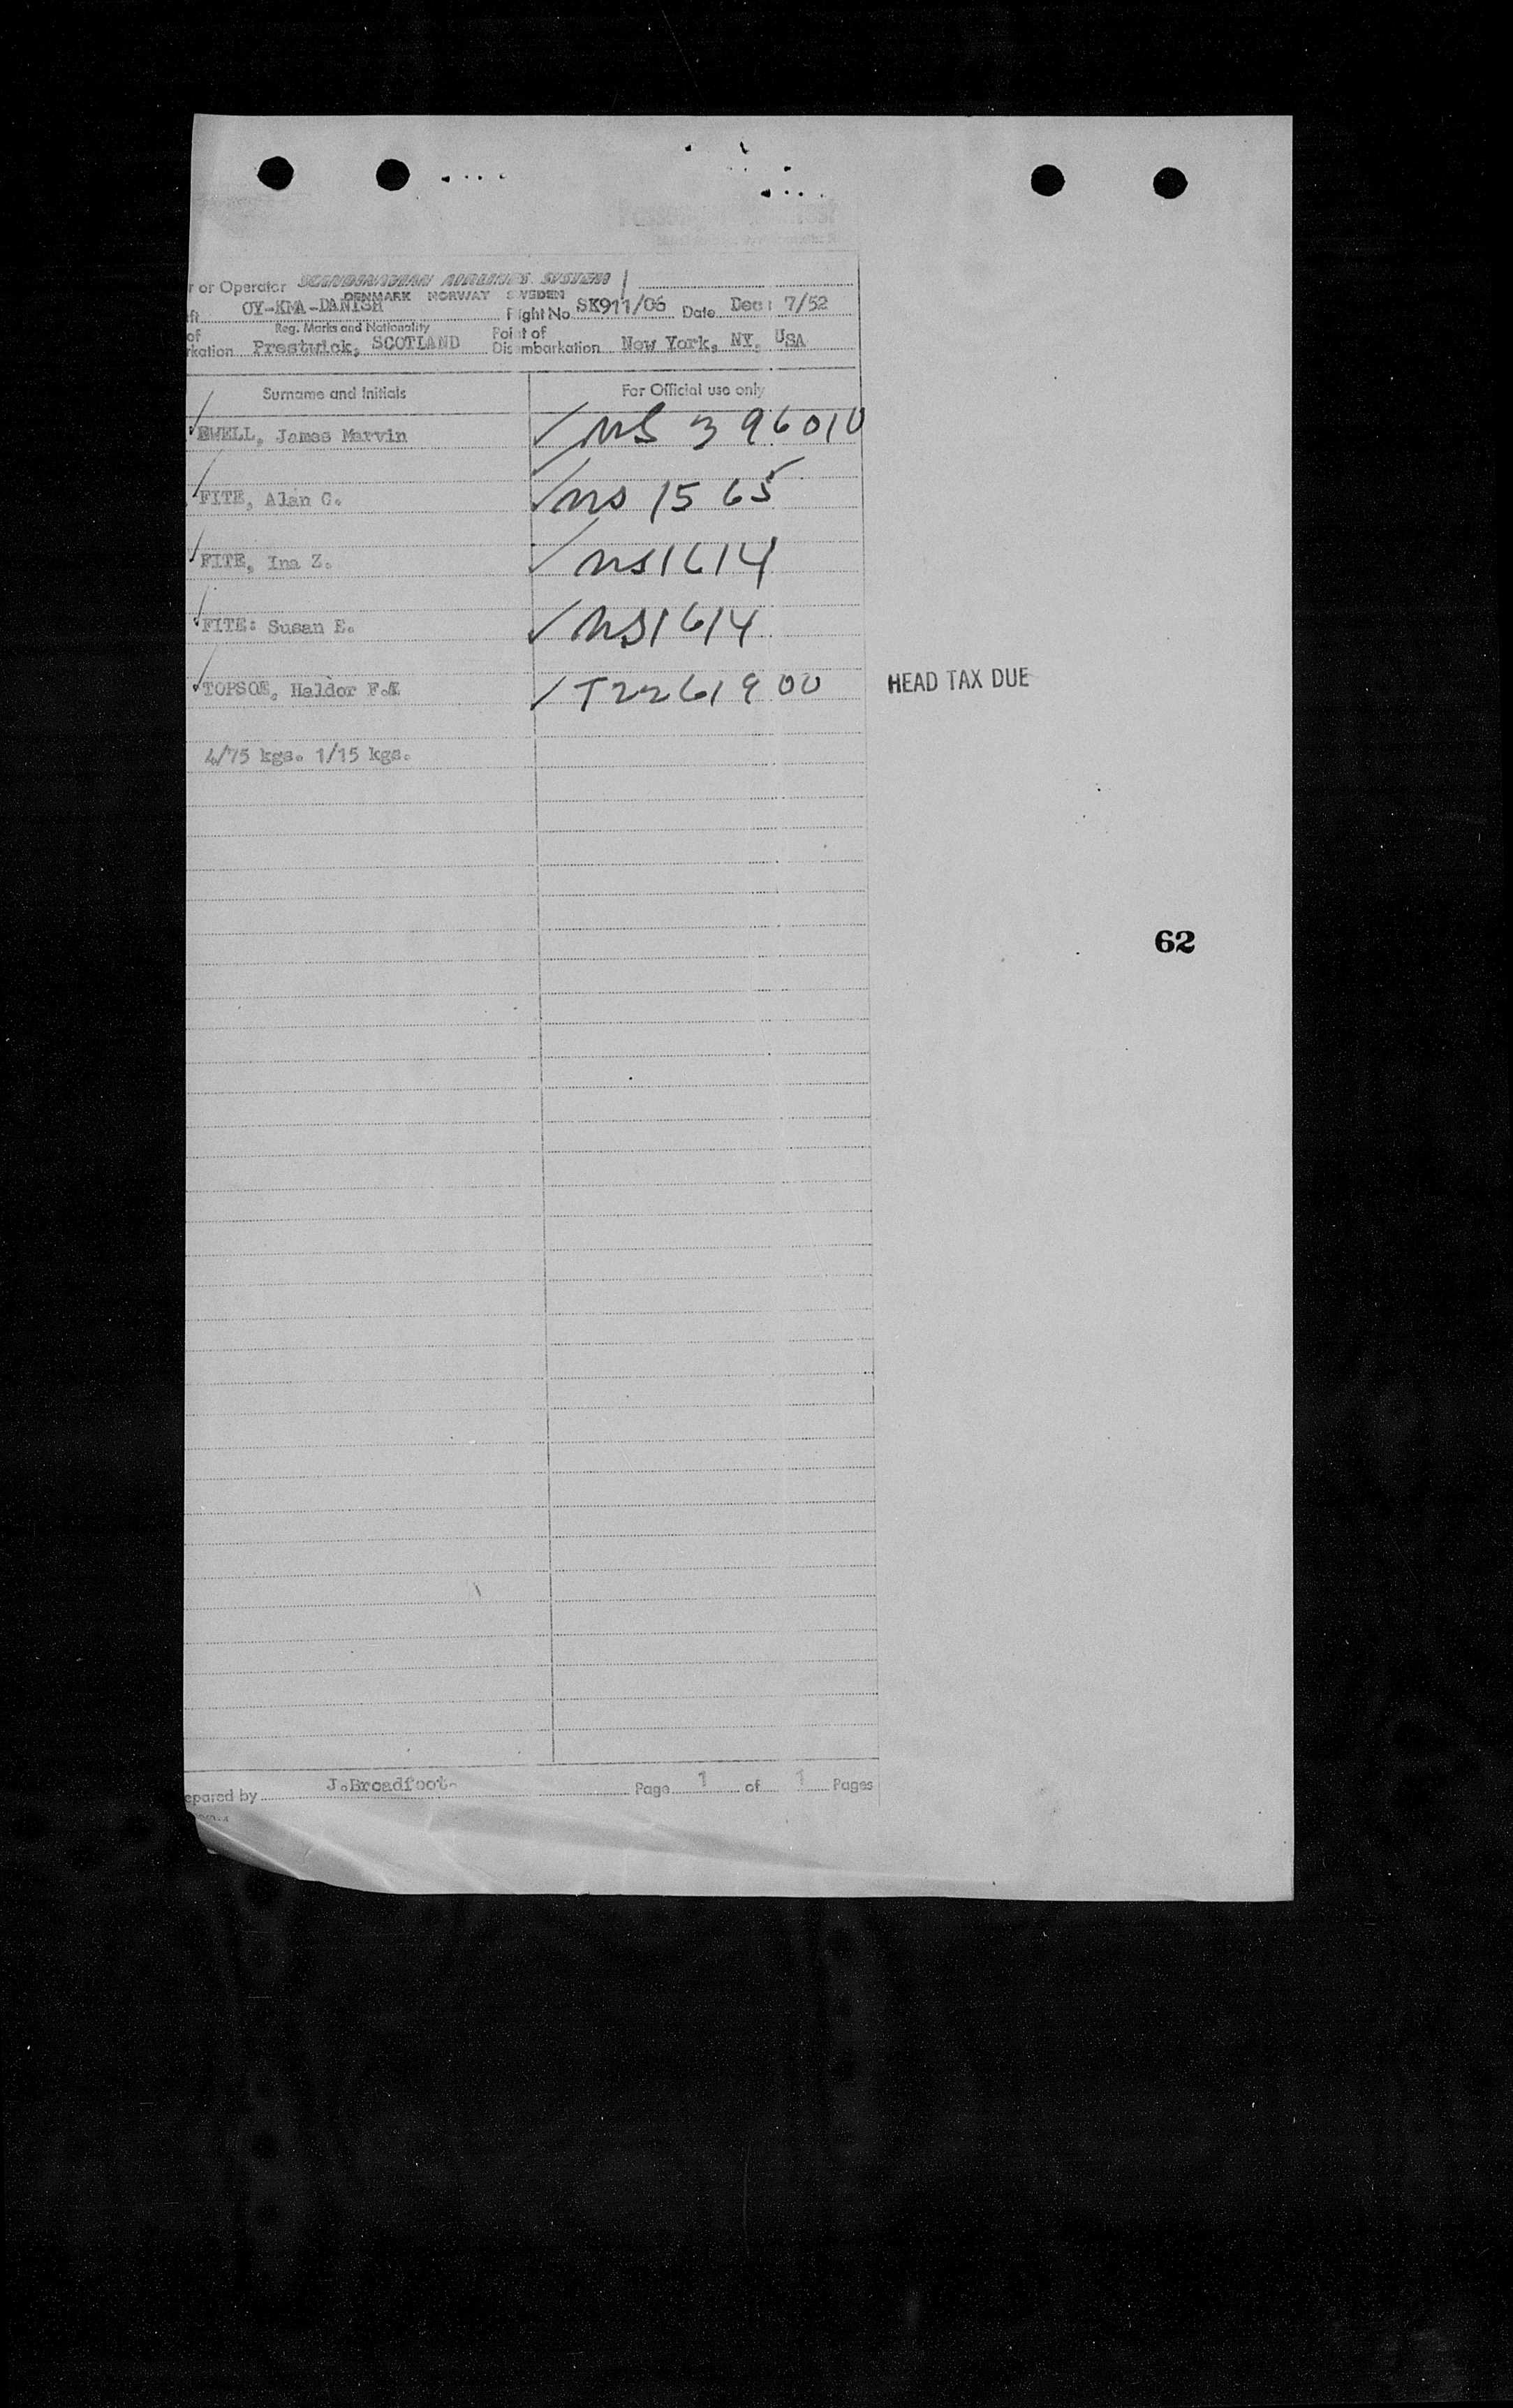 Passenger Manifest
r or Operator SCANDINAVIAN AIRLINES SYSTEM
DENMARK NORWAY SWEDEN
ft OY-KMA-DANISH Flight No. SK911/06 Date Dec: 7/52
Reg. Marks and Nationality
of
rkation Prestwick, SCOTLAND Point of Disembarkation New York, NY, USA
Surname and Initials For Official use only
EWELL, James Marvin ✓ NS 396010
FITE, Alan C. ✓ NS 1565
FITE, Ina Z. ✓ NS1614
FITE: Susan E. ✓ NS1614
TOPSOE, Haldor F.A ✓ T2261900 HEAD TAX DUE
4/75 kgs. 1/15 kgs.
62
epared by J.Broadfoot. Page 1 of 1 Pages